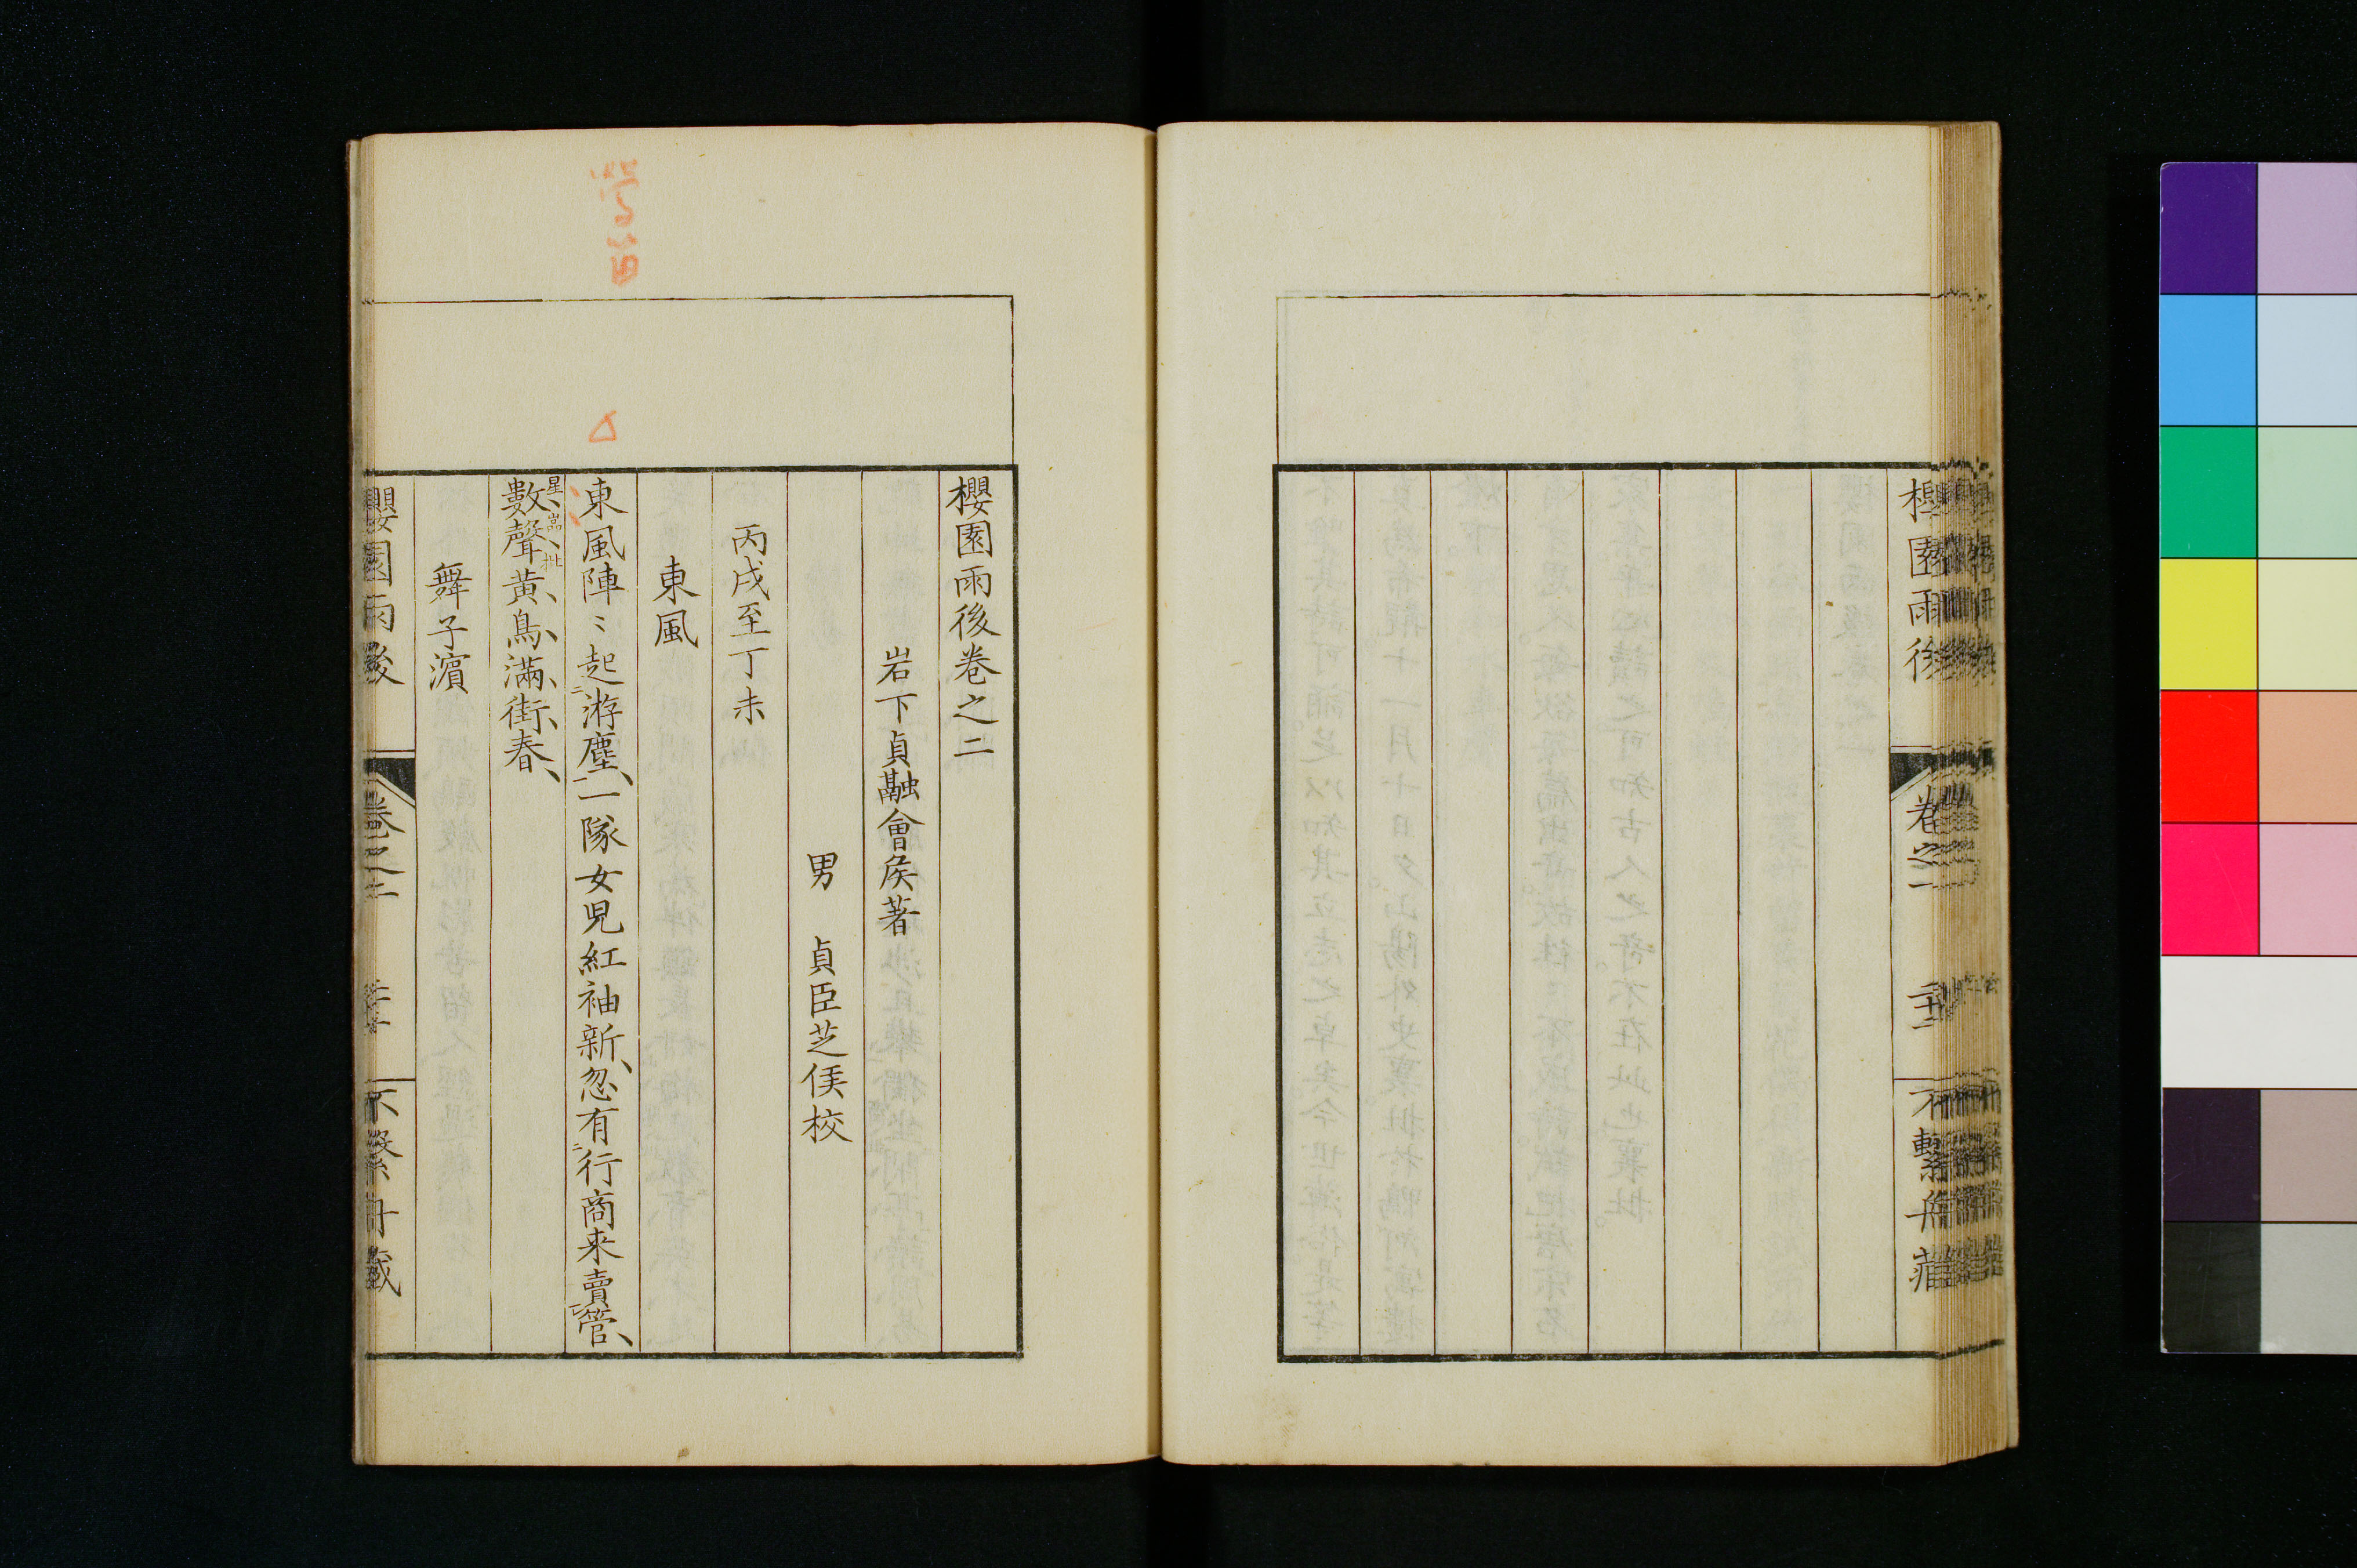 櫻園雨後
卷之一
不繫舟藏
櫻園雨後卷之二
岩下貞融會侯著
男 貞臣芝僕校
丙戌至丁未
東風
東風陣〻起游塵一隊女児紅袖新忽有行商来賣管
星巖批
數聲黄鳥滿街春
舞子濵
櫻園雨後
卷之二
不繫舟藏